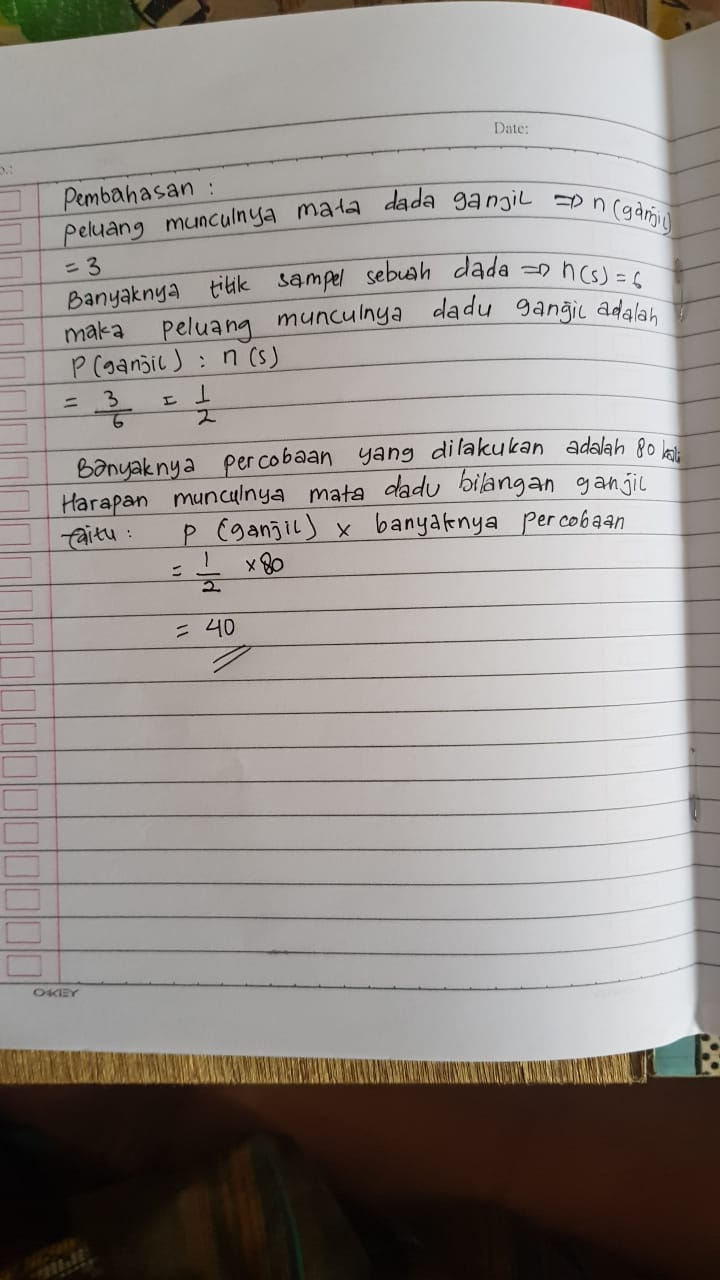 Date:
Pembahasan :
Peluang munculnya mata dada ganjil => n (ganjil)
= 3
Banyaknya titik sampel sebuah dada => n(s) = 6
maka peluang munculnya dadu ganjil adalah
P (ganjil) : n (s)
= 3/6 = 1/2
Banyaknya percobaan yang dilakukan adalah 80 kali
Harapan munculnya mata dadu bilangan ganjil
Yaitu : P (ganjil) x banyaknya percobaan
= 1/2 x 80
= 40
OKEY